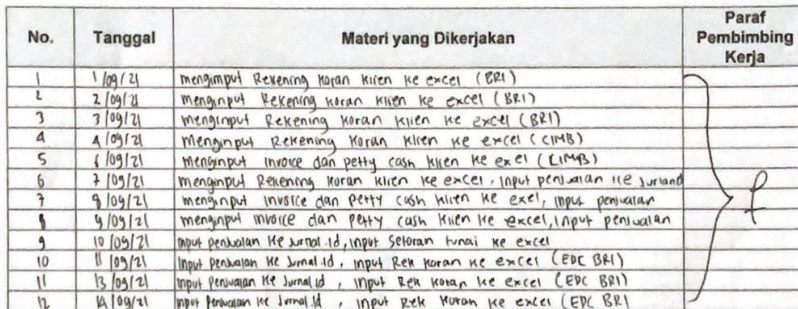 No. Tanggal Materi yang Dikerjakan Paraf Pembimbing Kerja
1 1/09/21 mengimput Rekening Koran Klien ke excel (BRI)
2 2/09/21 menginput Rekening Koran Klien ke excel (BRI)
3 3/09/21 menginput Rekening Koran Klien ke excel (BRI)
4 4/09/21 Menginput Rekening Koran Klien ke excel (CIMB)
5 6/09/21 Menginput invoice dan petty cash klien ke excel (CIMB)
6 7/09/21 menginput Rekening Koran Klien ke excel, input penjualan ke
7 menginput invoice dan petty cash Klien ke exel, input penjualan
8 9/09/21 menginput invoice dan petty cash Klien ke excel, input penjualan
9 10/09/21 input penjualan ke Jurnal.id, input Setoran tunai ke excel
10 11/09/21 Input penjualan ke Jurnal.id, input Rek Koran ke excel (EDC BRI)
11 13/09/21 Input penjualan ke Jurnal.id, input Rek Koran ke excel (EDC BRI)
12 14/09/21 input penjualan ke Jurnal.id, input Rek Koran ke excel (EDC BRI